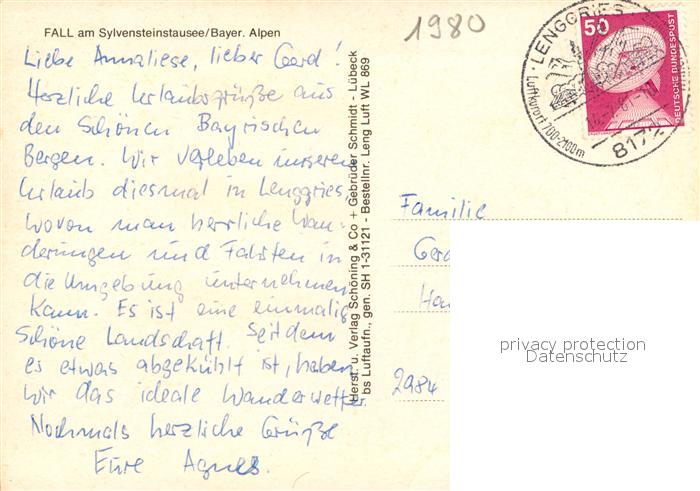 FALL am Sylvensteinstausee/Bayer. Alpen
1980
Liebe Annaliese, lieber Gerd!
Herzliche Urlaubsgrüße aus
den Schönen Bayrischen
Bergen. Wir verleben unseren
Urlaub diesmal in Lenggries,
wovon man herrliche Wan-
derungen und Fahrten in
die Umgebung unternehmen
kann. Es ist eine einmalig
schöne Landschaft. Seitdem
es etwas abgekühlt ist, haben
wir das ideale Wanderwetter.
Nochmals herzliche Grüße
Eure Agnes.
Herst. u. Verlag Schöning & Co + Gebrüder Schmidt - Lübeck
bs Luftaufn., gen. SH 1-31121 - Bestellnr. Leng Luft WL 869
LENGGRIES
Luftkurort 700-2100m
8172
50
DEUTSCHE BUNDESPOST
Familie
Gerd
2984
privacy protection
Datenschutz